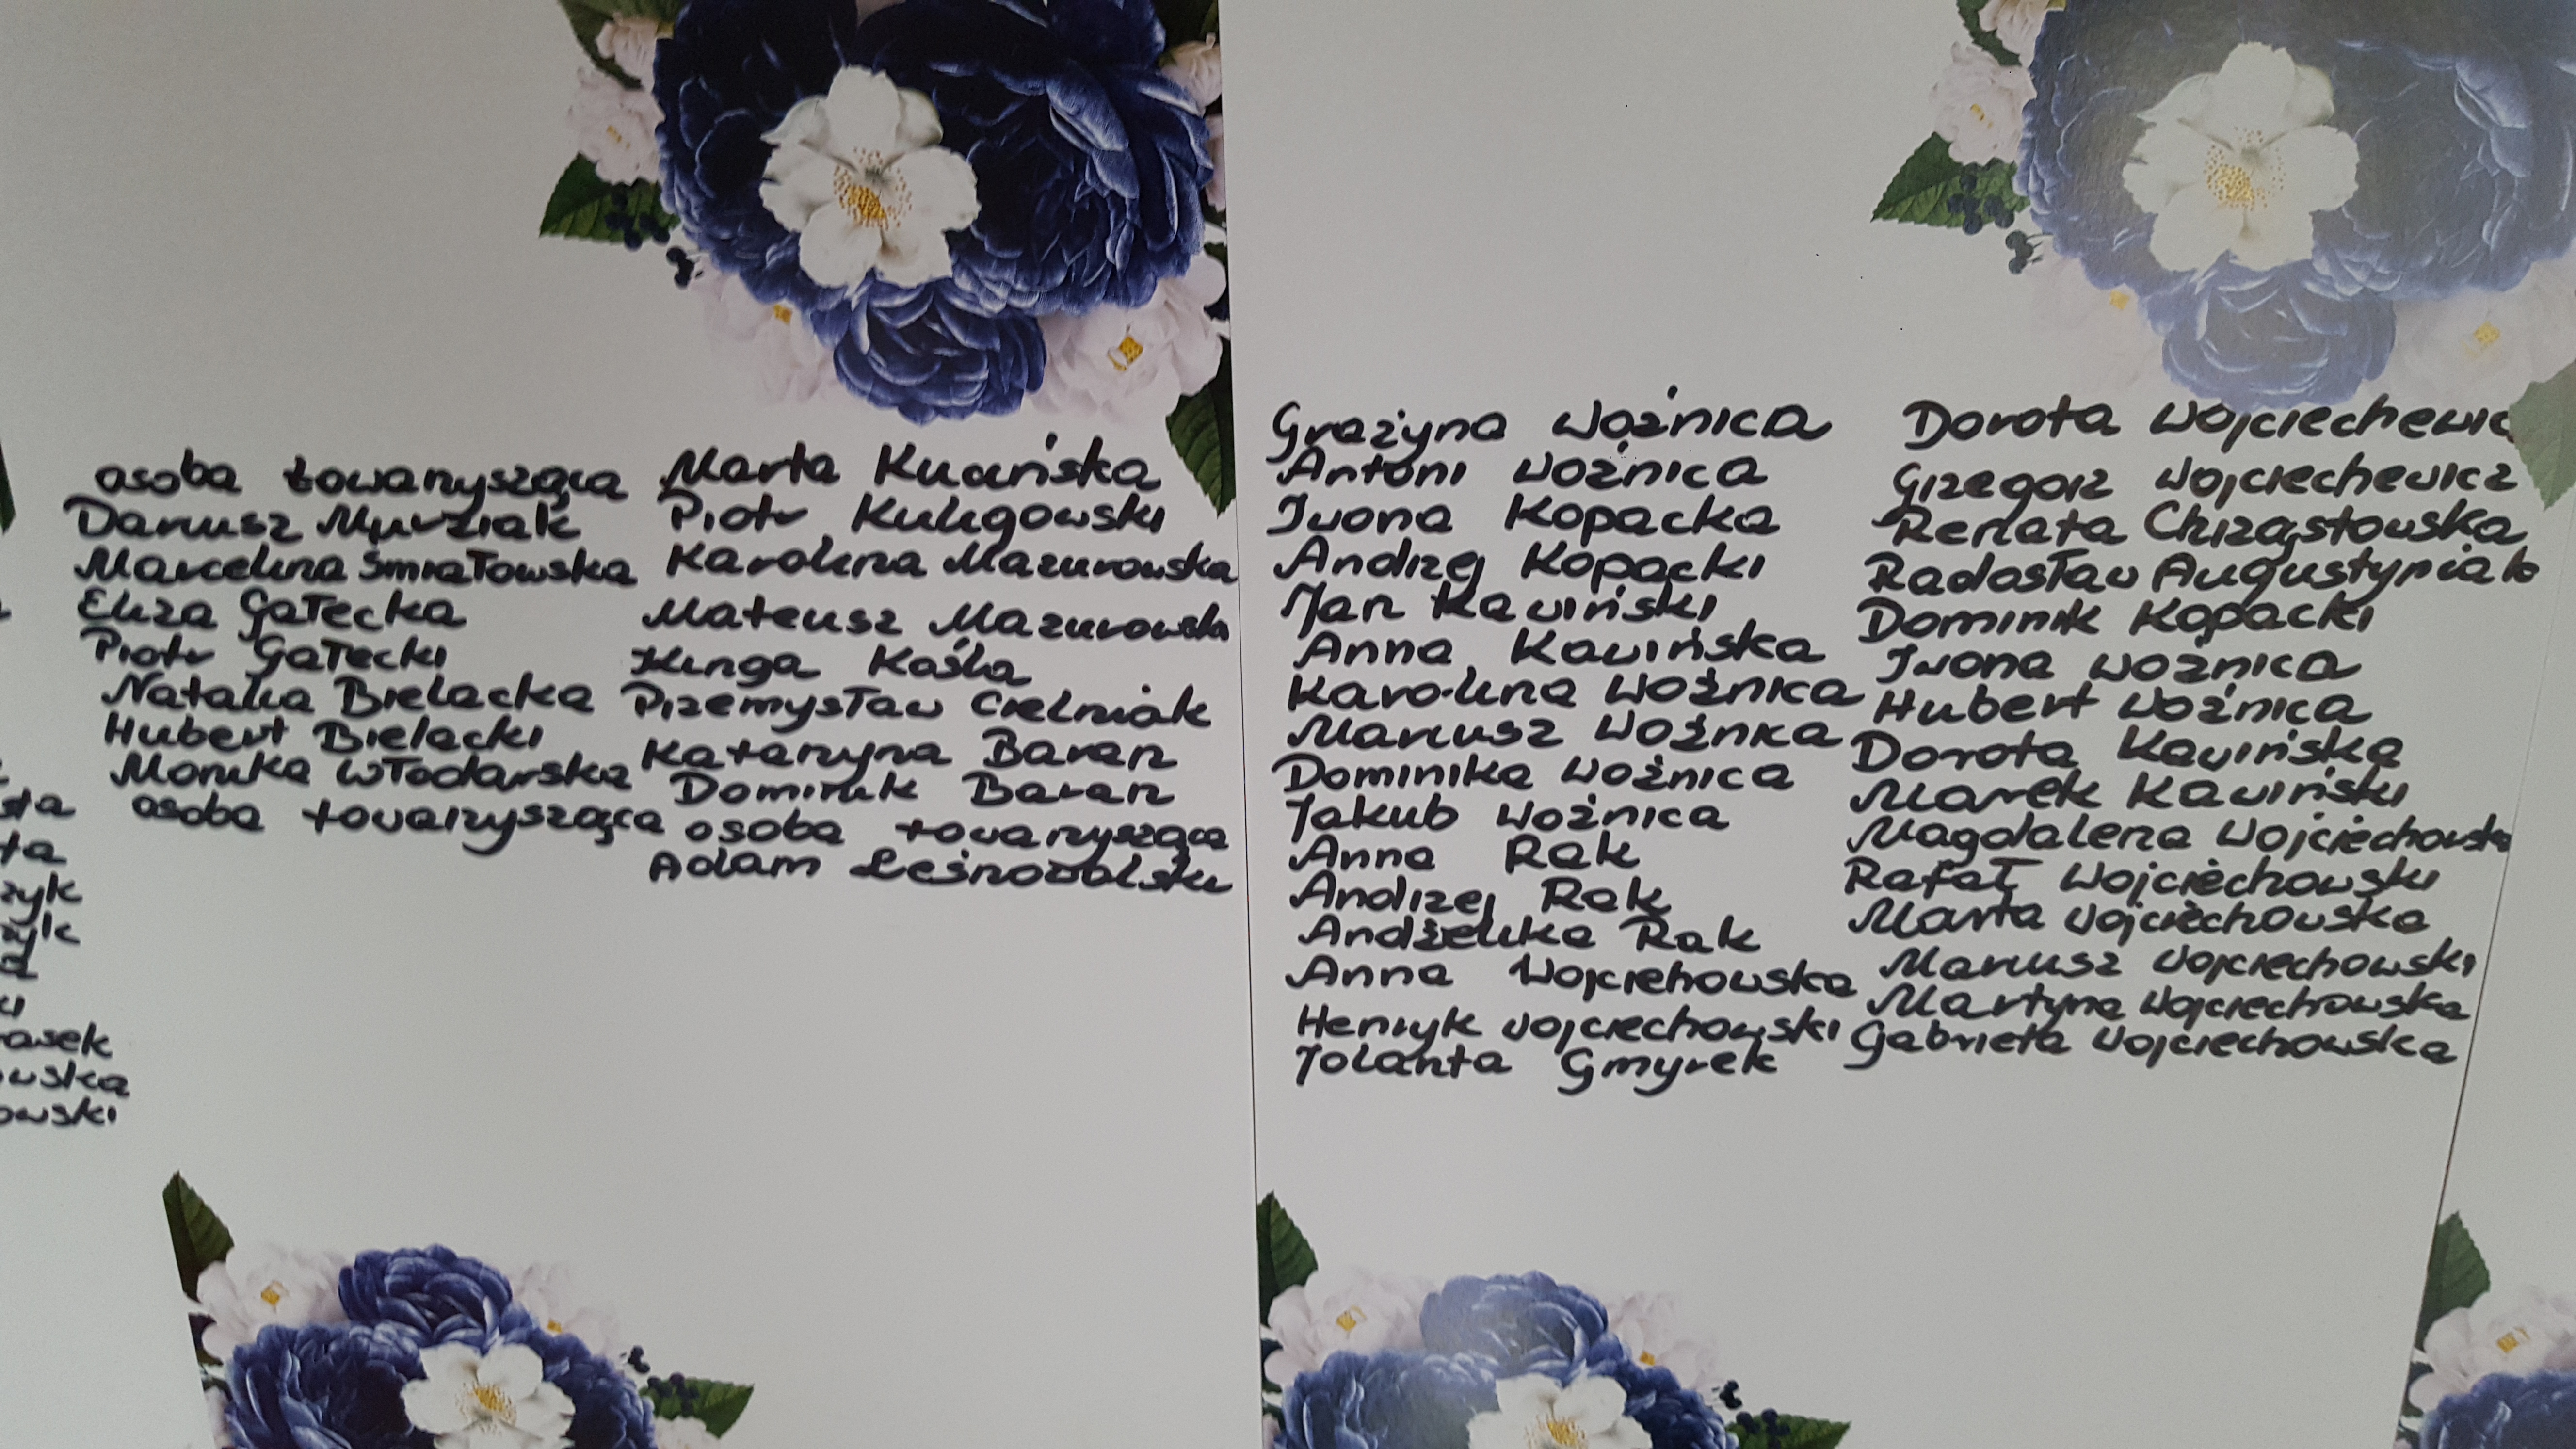 sta
ta
zyk
zyk
asek
owska
owski
osoba towarzysząca
Dariusz Murziak
Marcelina Śmiałowska
Eliza Gałecka
Piotr Gałecki
Natalia Bielacka
Hubert Bielacki
Monika Włodarska
osoba towarzysząca
Marta
Piotr Kuligowski
Karolina Mazurowska
Mateusz Mazurowski
Kinga Kośla
Przemysław Cielniak
Katarzyna Baran
Dominik Baran
osoba towarzysząca
Adam Leśnowolski
Grażyna Woźnica
Antoni Woźnica
Iwona Kopacka
Andrzej Kopacki
Jan Kawiński
Anna Kawińska
Karolina Woźnica
Mariusz Woźnica
Dominika Woźnica
Jakub Woźnica
Anna Rak
Andrzej Rak
Andżelika Rak
Anna Wojciehowska
Henryk Wojciechowski
Jolanta Gmyrek
Dorota Wojciechewic
Grzegorz Wojciechewicz
Renata Chrząstowska
Radosław Augustyniak
Dominik Kopacki
Iwona Woźnica
Hubert Woźnica
Dorota Kawińska
Marek Kawiński
Magdalena Wojciechowska
Rafał Wojciechowski
Marta Wojciechowska
Mariusz Wojciechowski
Martyna Wojciechowska
Gabriela Wojciechowska